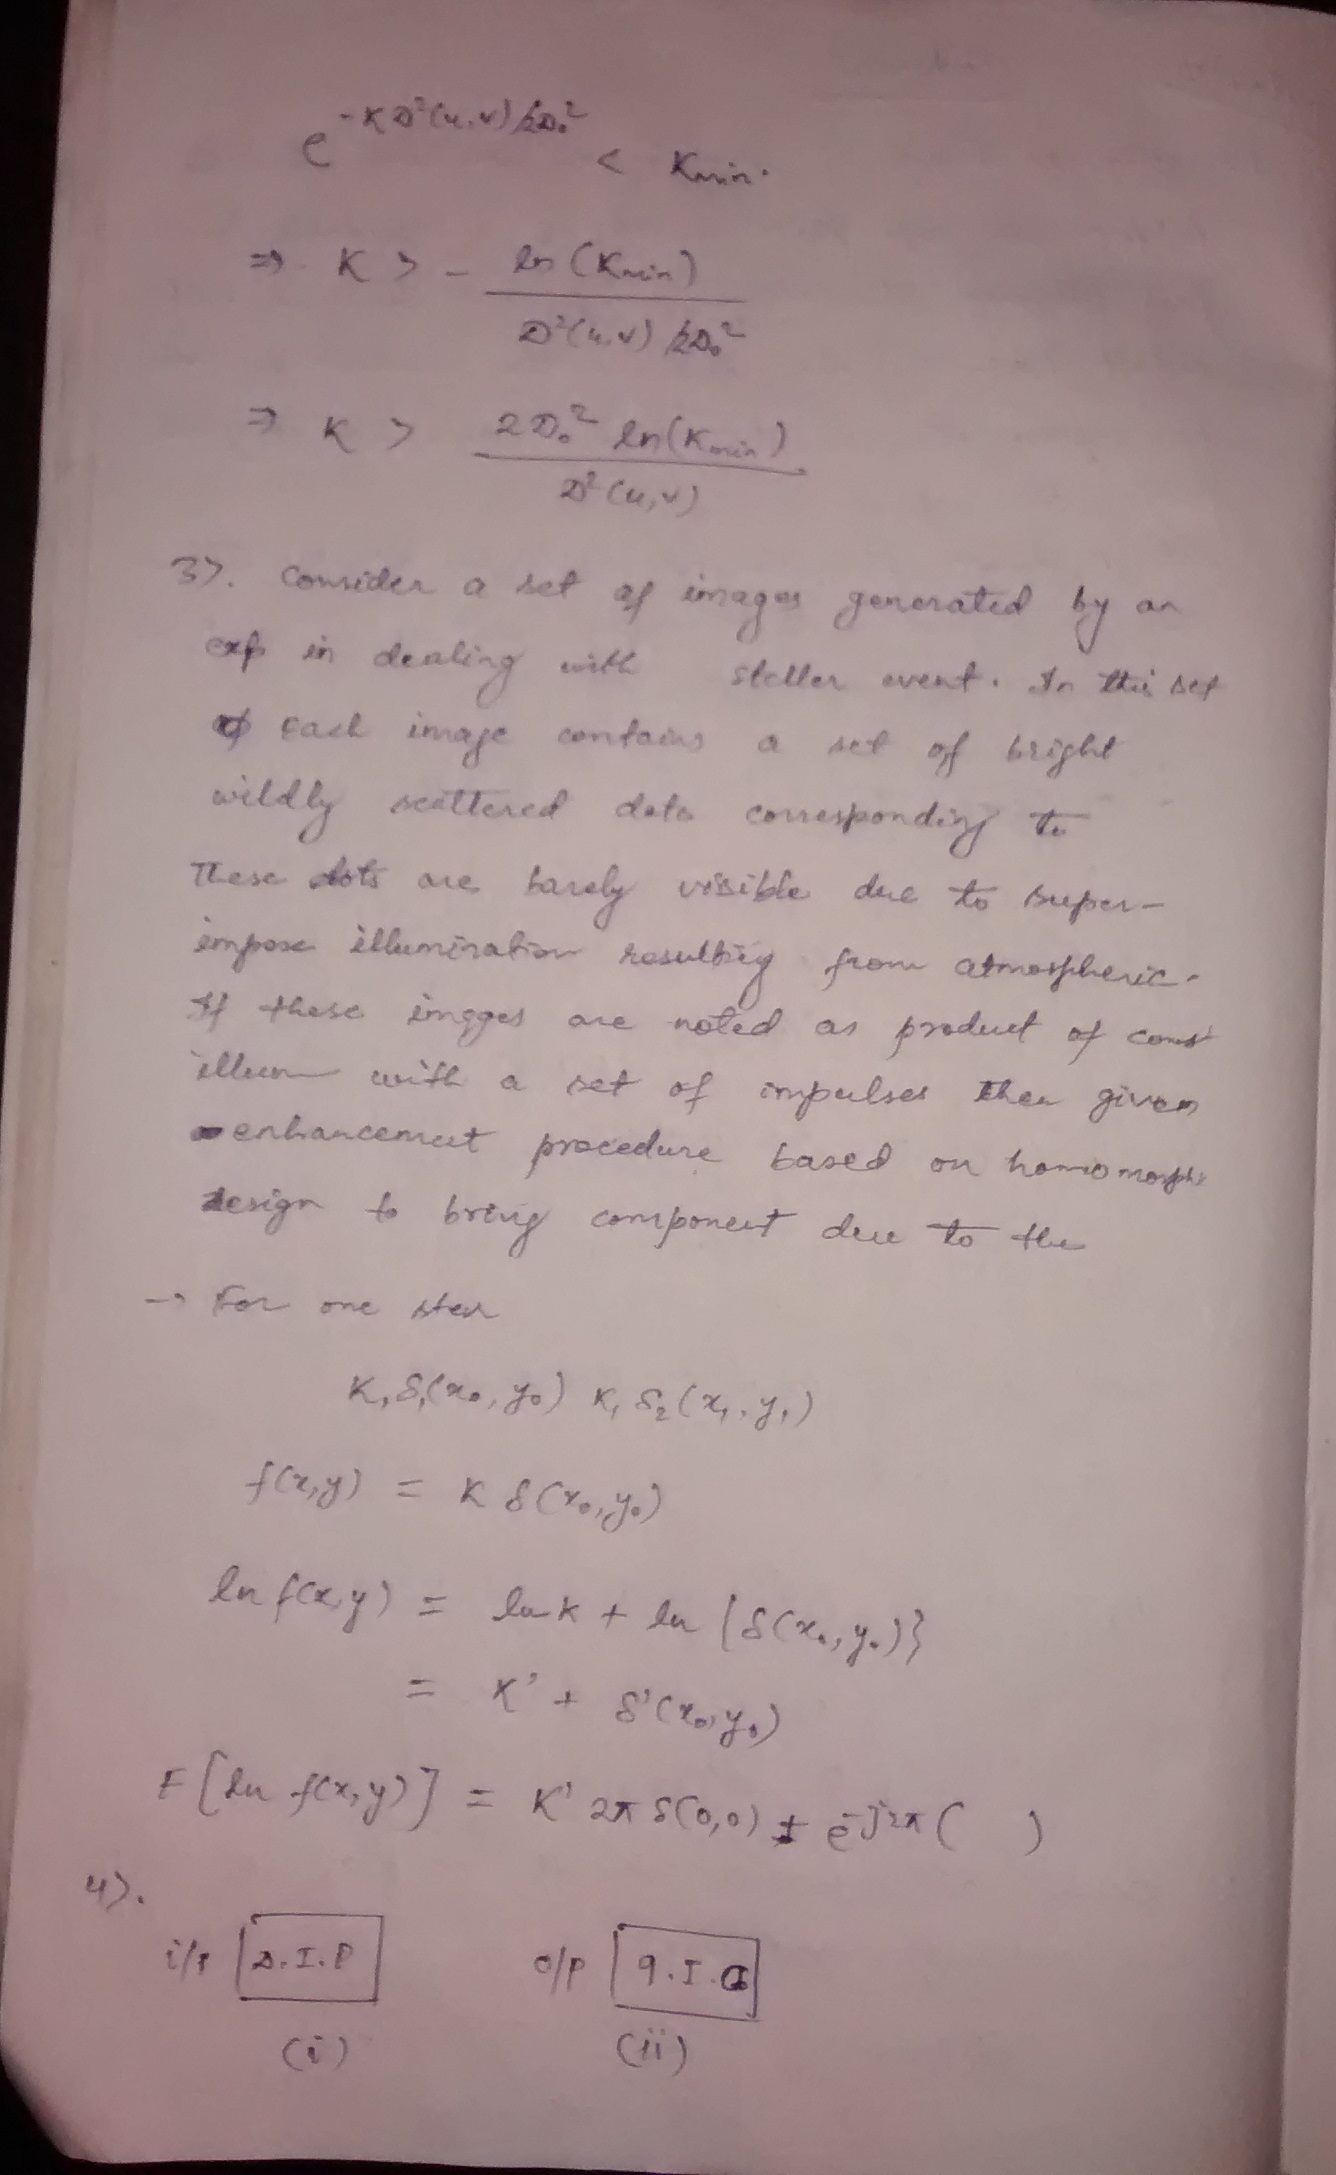 e^{-KD²(u,v)/2D₀²} < Kmin.
⇒ K > - ln(Kmin) / D²(u,v)/2D₀²
⇒ K > 2D₀² ln(Kmin) / D²(u,v)
3). Consider a set of images generated by an
exp in dealing with steller event. In this set
of each image contains a set of bright
wildly scattered dots corresponding to
These dots are barely visible due to super-
impose illumination resulting from atmospheric.
If these imges are noted as product of const
illum with a set of impulses then given
enhancement procedure based on homomorph
design to bring component due to the
→ For one star
K₁δ₁(x₀,y₀) K₁δ₂(x₁,y₁)
f(x,y) = K δ(x₀,y₀)
ln f(x,y) = ln K + ln {δ(x₀,y₀)}
= K' + δ'(x₀,y₀)
F[ln f(x,y)] = K' 2π δ(0,0) + e^{-j2π( )
4). i/p D.I.P o/p q.I.Q
(i) (ii)